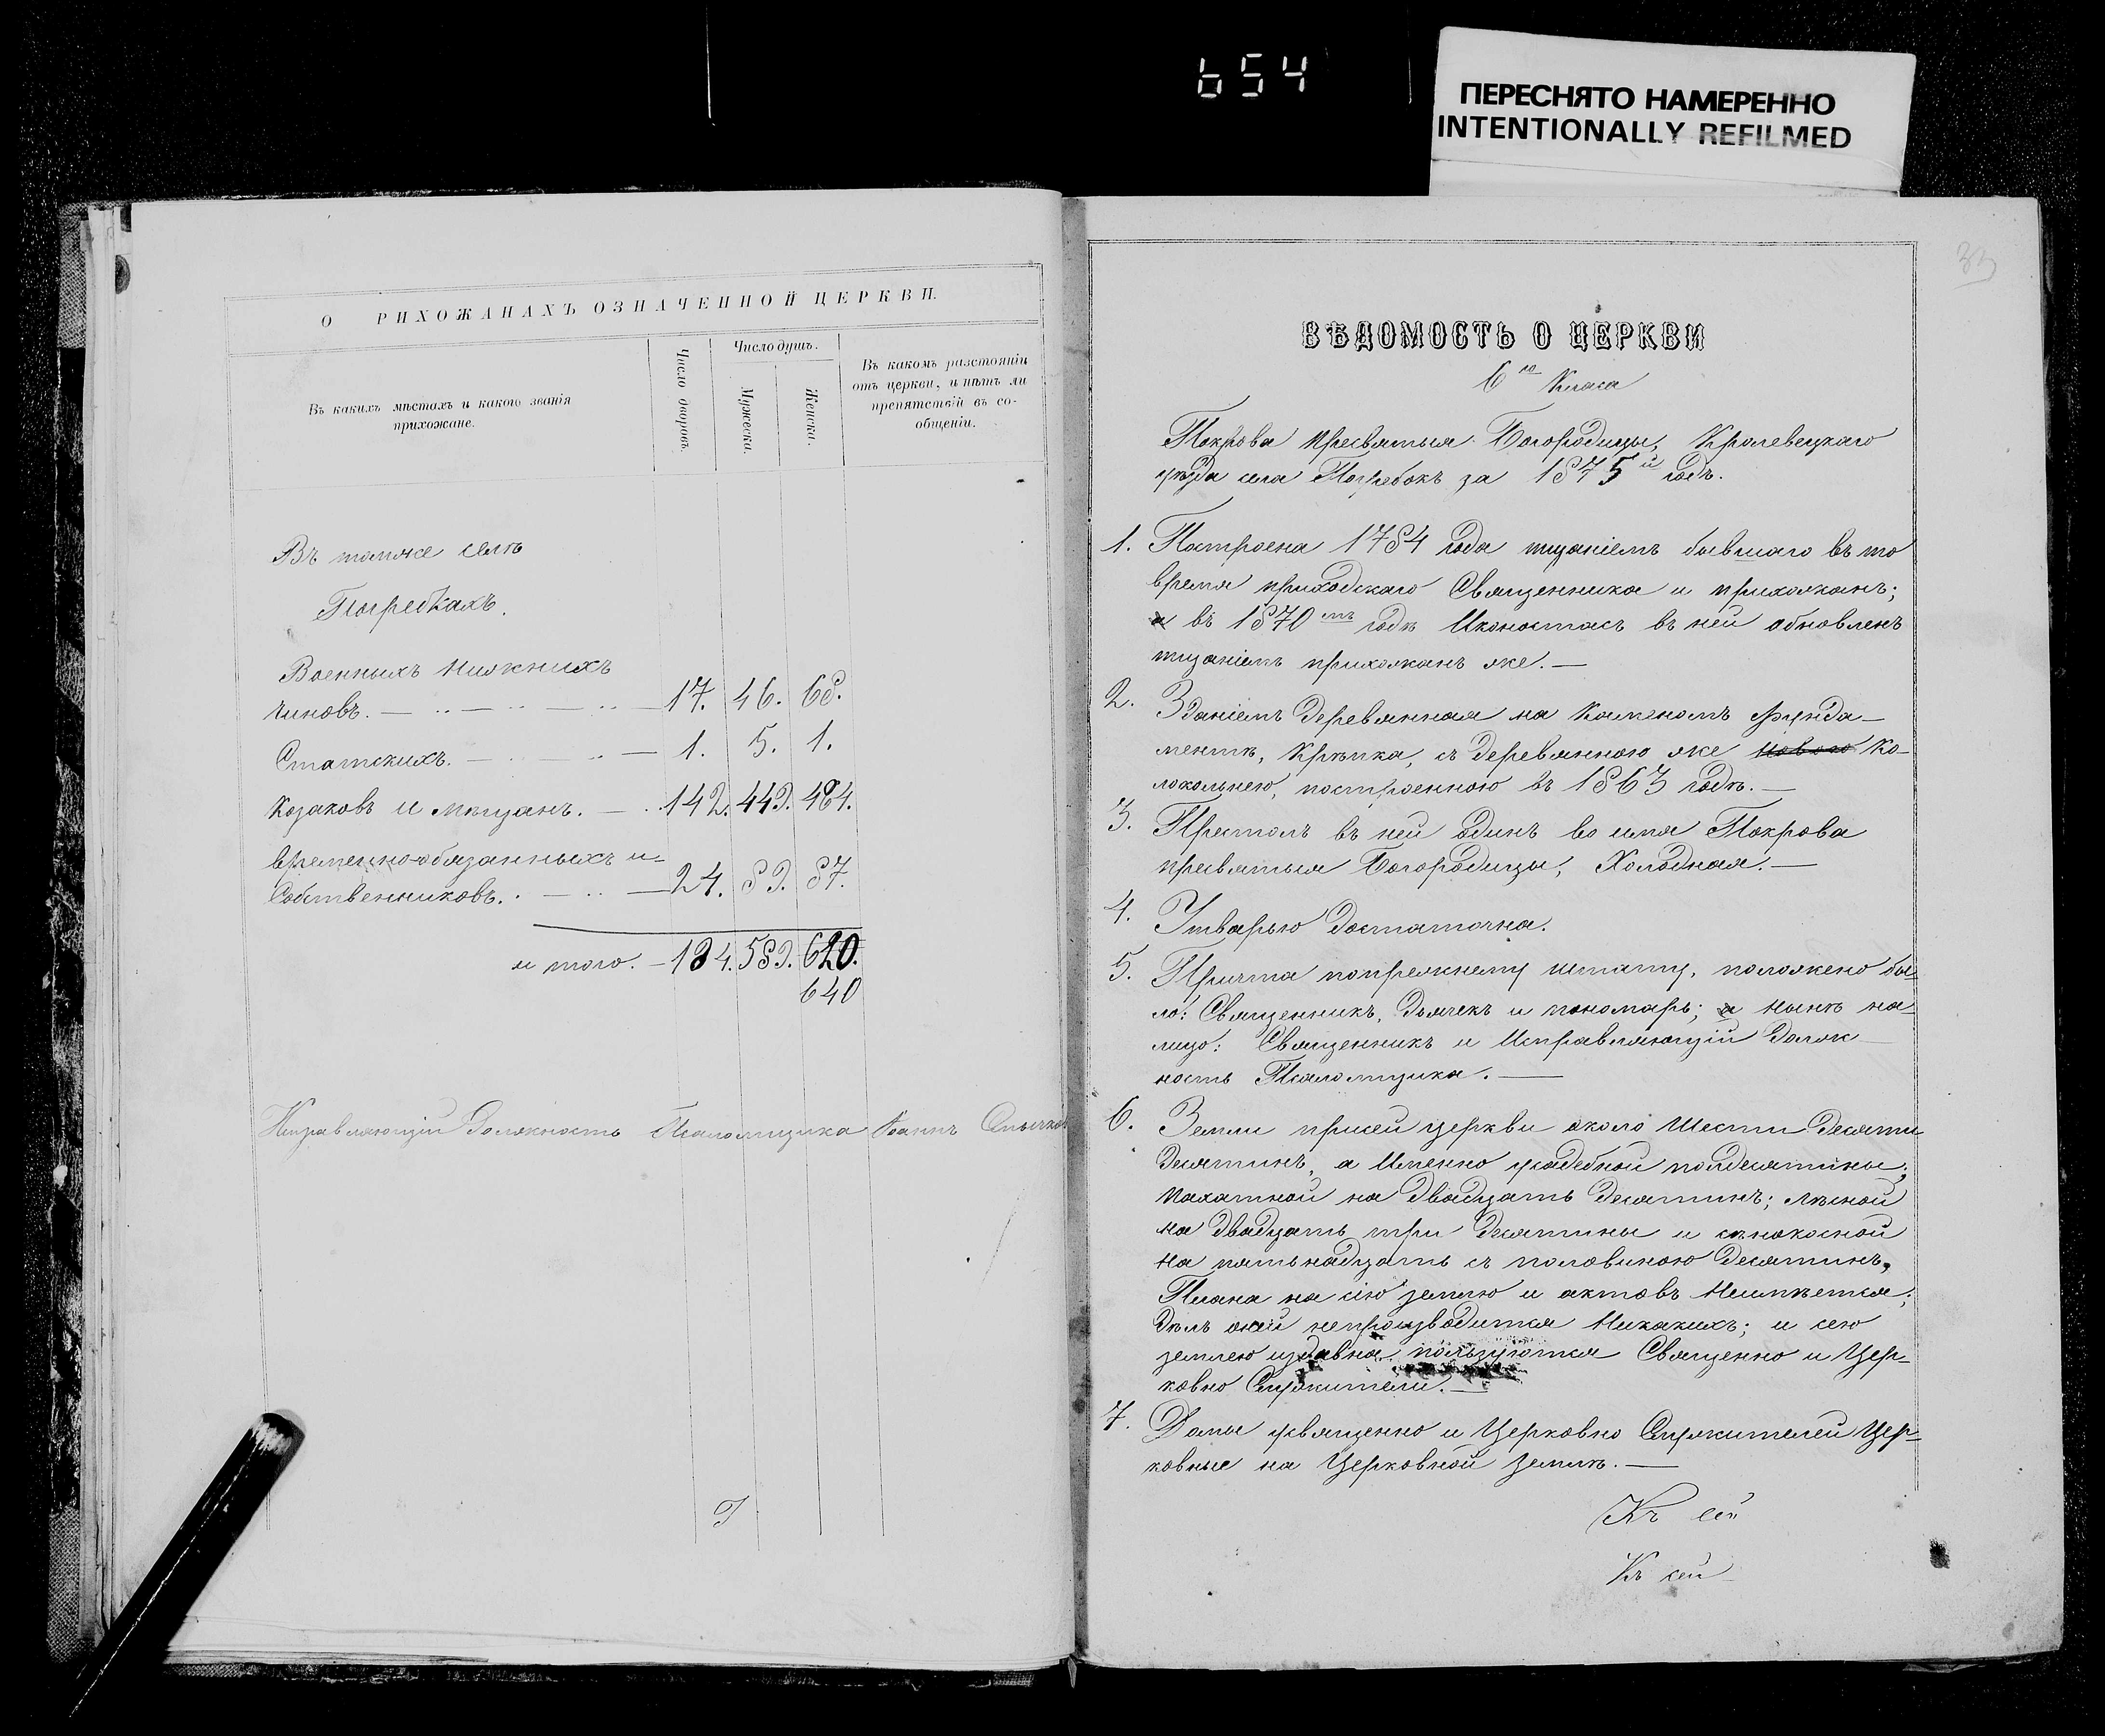 654
ПЕРЕСНЯТО НАМЕРЕННО
INTENTIONALLY REFILMED
О РИХОЖАНАХЪ ОЗНАЧЕННОЙ ЦЕРКВИ.
Въ какихъ мѣстахъ и какого званія
прихожане.
Число дворовъ.
Число душъ.
Мужеска.
Женска.
Въ какомъ разстояніи
отъ церкви, и нѣтъ ли
препятствій въ со-
общеніи.
Въ томже селѣ
Погребкахъ.
Военныхъ нижнихъ
чиновъ. 17. 46. 68.
Статскихъ. 1. 5. 1.
Козаковъ и мѣщанъ. 142. 449. 484.
временно-обязанныхъ и
Собственниковъ. 24. 89. 87.
и того. 184. 589. 620.
640
Исправляющій Должность Псаломщика Іоаннъ
33
ВѢДОМОСТЬ О ЦЕРКВИ
6го Класа
Покрова пресвятыя Богородицы, Кролевецкаго
уѣзда села Погребокъ за 1875й годъ.
1. Построена 1784 года тщаніемъ бывшаго въ то
время приходскаго Священника и прихожанъ;
а въ 1870мъ годѣ Иконостасъ въ ней обновленъ
тщаніемъ прихожанъ же.—
2. Зданіемъ деревянная на каменомъ фунда-
ментѣ, крѣпка, съ деревянною же новою ко-
локольнею, построенною въ 1863 годѣ.—
3. Престолъ въ ней одинъ во имя Покрова
пресвятыя Богородицы, Холодная.—
4. Утварью достаточна.
5. Причта попрежнему штату, положено бы-
ло: Священникъ, Дьячекъ и пономарь; а нынѣ на-
лицо: Священникъ и Исправляющій Долж-
ность Псаломщика.—
6. Земли присей церкви около Шести десяти
десятинъ, а Именно усадебной полдесятины;
пахатной на двадцать десятинъ; лѣсной
на двадцать три десятины и сѣнокосной
на пятьнадцать съ половиною десятинъ,
Плана на сію землю и актовъ неимѣется;
дѣлъ оней непроизводится Никакихъ; и сею
землею издавна пользуются Священно и Цер-
ковно Служители.—
7. Домы священно и Церковно Служителей Цер-
ковные на Церковной землѣ.—
Къ сей
Къ сей